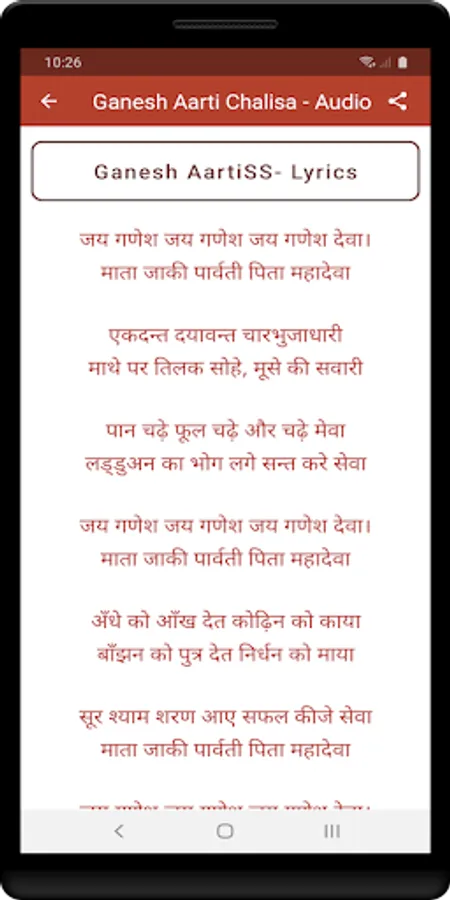 10:26
Ganesh Aarti Chalisa - Audio
Ganesh AartiSS- Lyrics
जय गणेश जय गणेश जय गणेश देवा।
माता जाकी पार्वती पिता महादेवा
एकदन्त दयावन्त चारभुजाधारी
माथे पर तिलक सोहे, मूसे की सवारी
पान चढ़े फूल चढ़े और चढ़े मेवा
लड्डुअन का भोग लगे सन्त करे सेवा
जय गणेश जय गणेश जय गणेश देवा।
माता जाकी पार्वती पिता महादेवा
अँधे को आँख देत कोढ़िन को काया
बाँझन को पुत्र देत निर्धन को माया
सूर श्याम शरण आए सफल कीजे सेवा
माता जाकी पार्वती पिता महादेवा